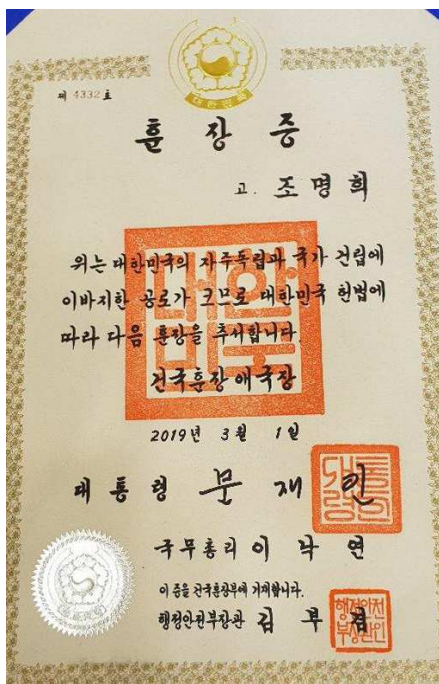 대한민국
제 4332 호
훈장증
고. 조명희
위는 대한민국의 자주독립과 국가 건립에
이바지한 공로가 크므로 대한민국 헌법에
따라 다음 훈장을 추서합니다.
대한민국
건국훈장 애국장
2019년 3월 1일
대통령 문재인
대통령의인
국무총리 이낙연
이 증을 건국훈장부에 기재합니다.
행정안전부장관 김부겸
행정안전부장관인